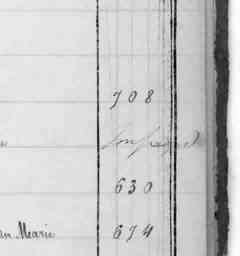 708
630
an Marie 674